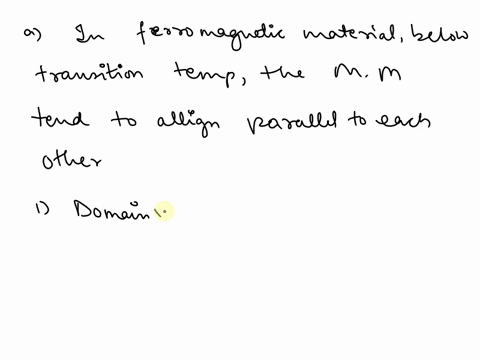 a) In ferromagnetic material, below
transition temp, the M.M
tend to allign parallel to each
other
1) Domain